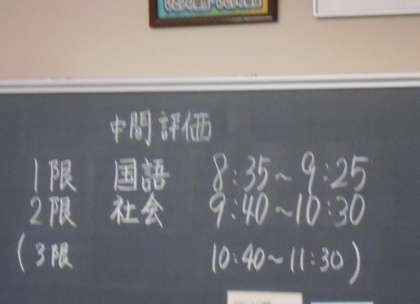 中間評価
1限 国語 8:35~9:25
2限 社会 9:40~10:30
(3限 10:40~11:30)